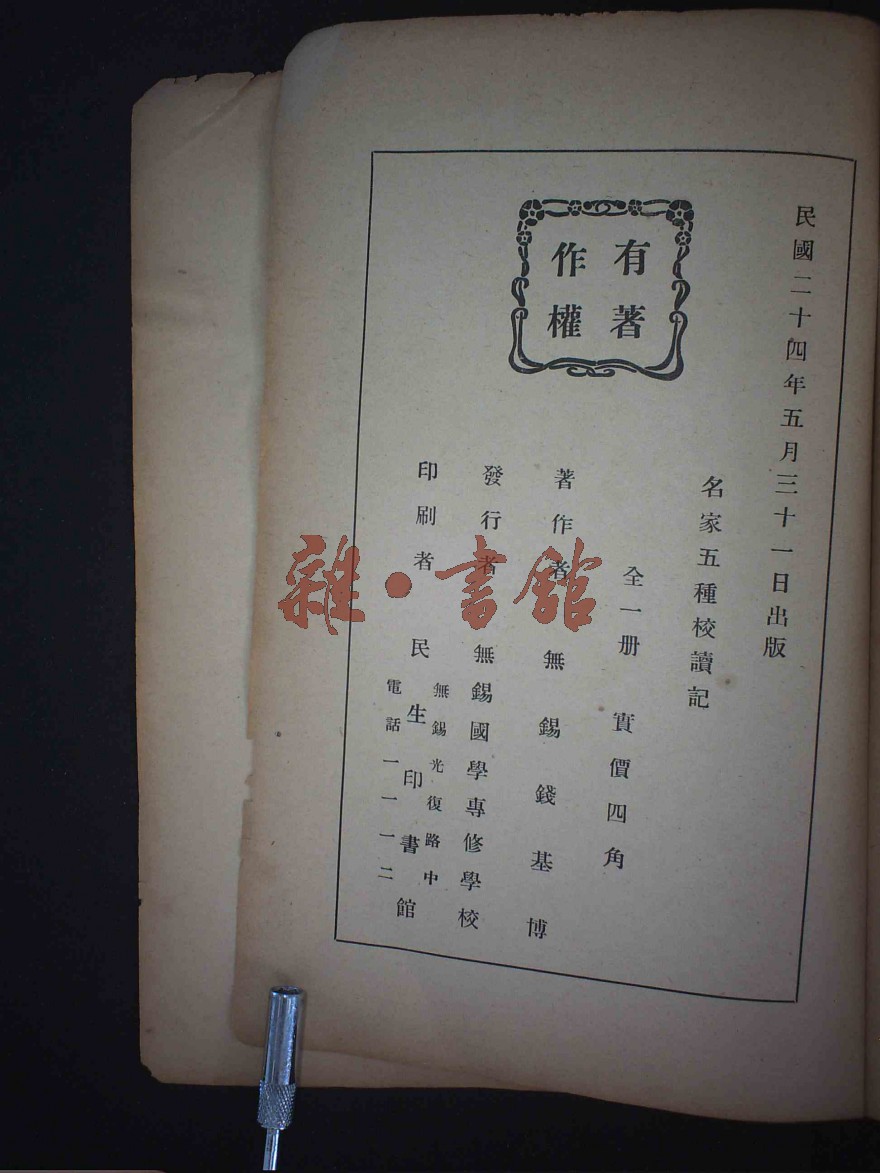 民國二十四年五月三十一日出版
名家五種校讀記
有著
作權
全一册 實價四角
著作者 無錫錢基博
發行者 無錫國學專修學校
印刷者 民生印書館
無錫光復路中
電話一一一二
雜·書館